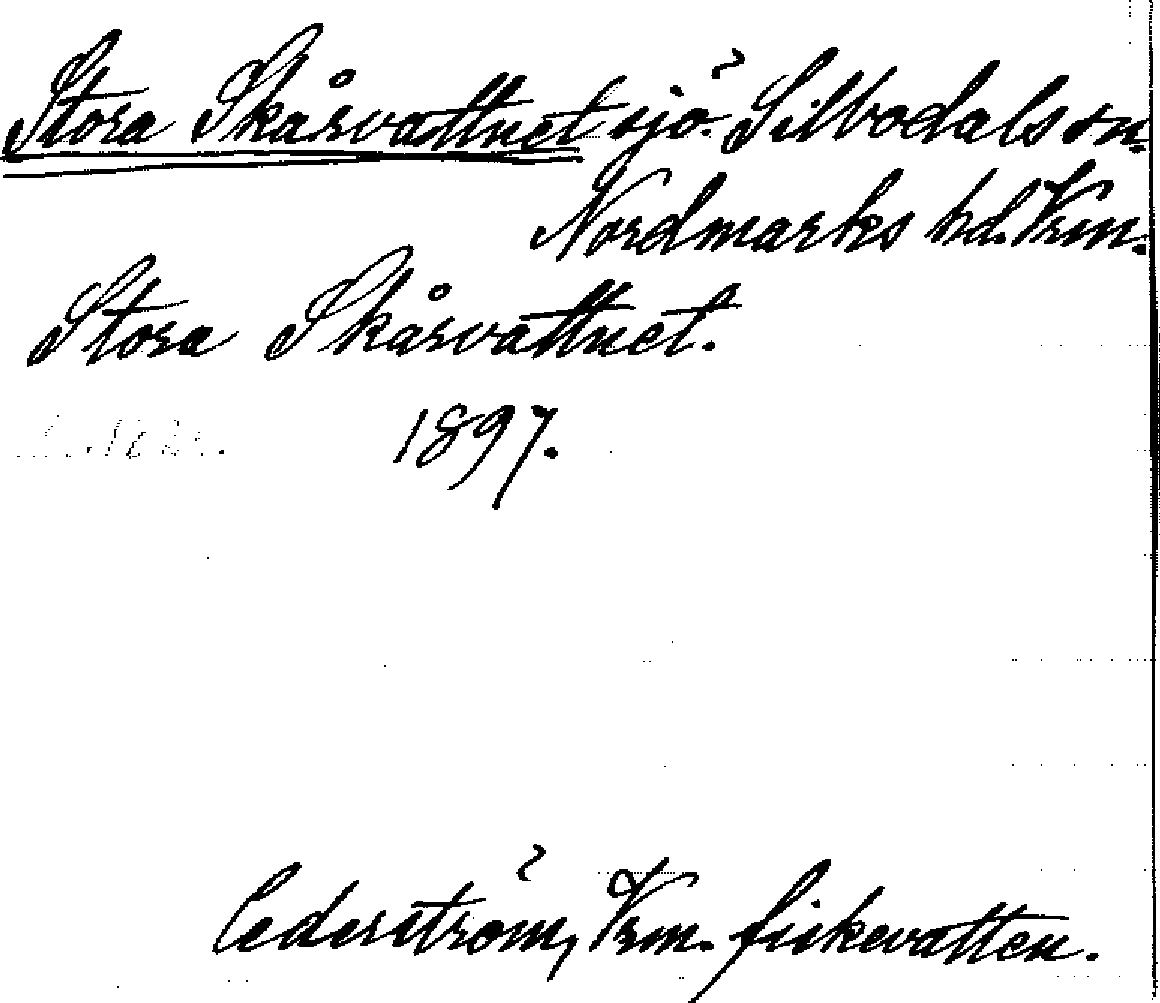 Stora Skårvattnet sjö. Silbodals sn.
Nordmarks hd. Vrm.
Stora Skårvattnet.
1897.
Cederström, Vrm. fiskevatten.